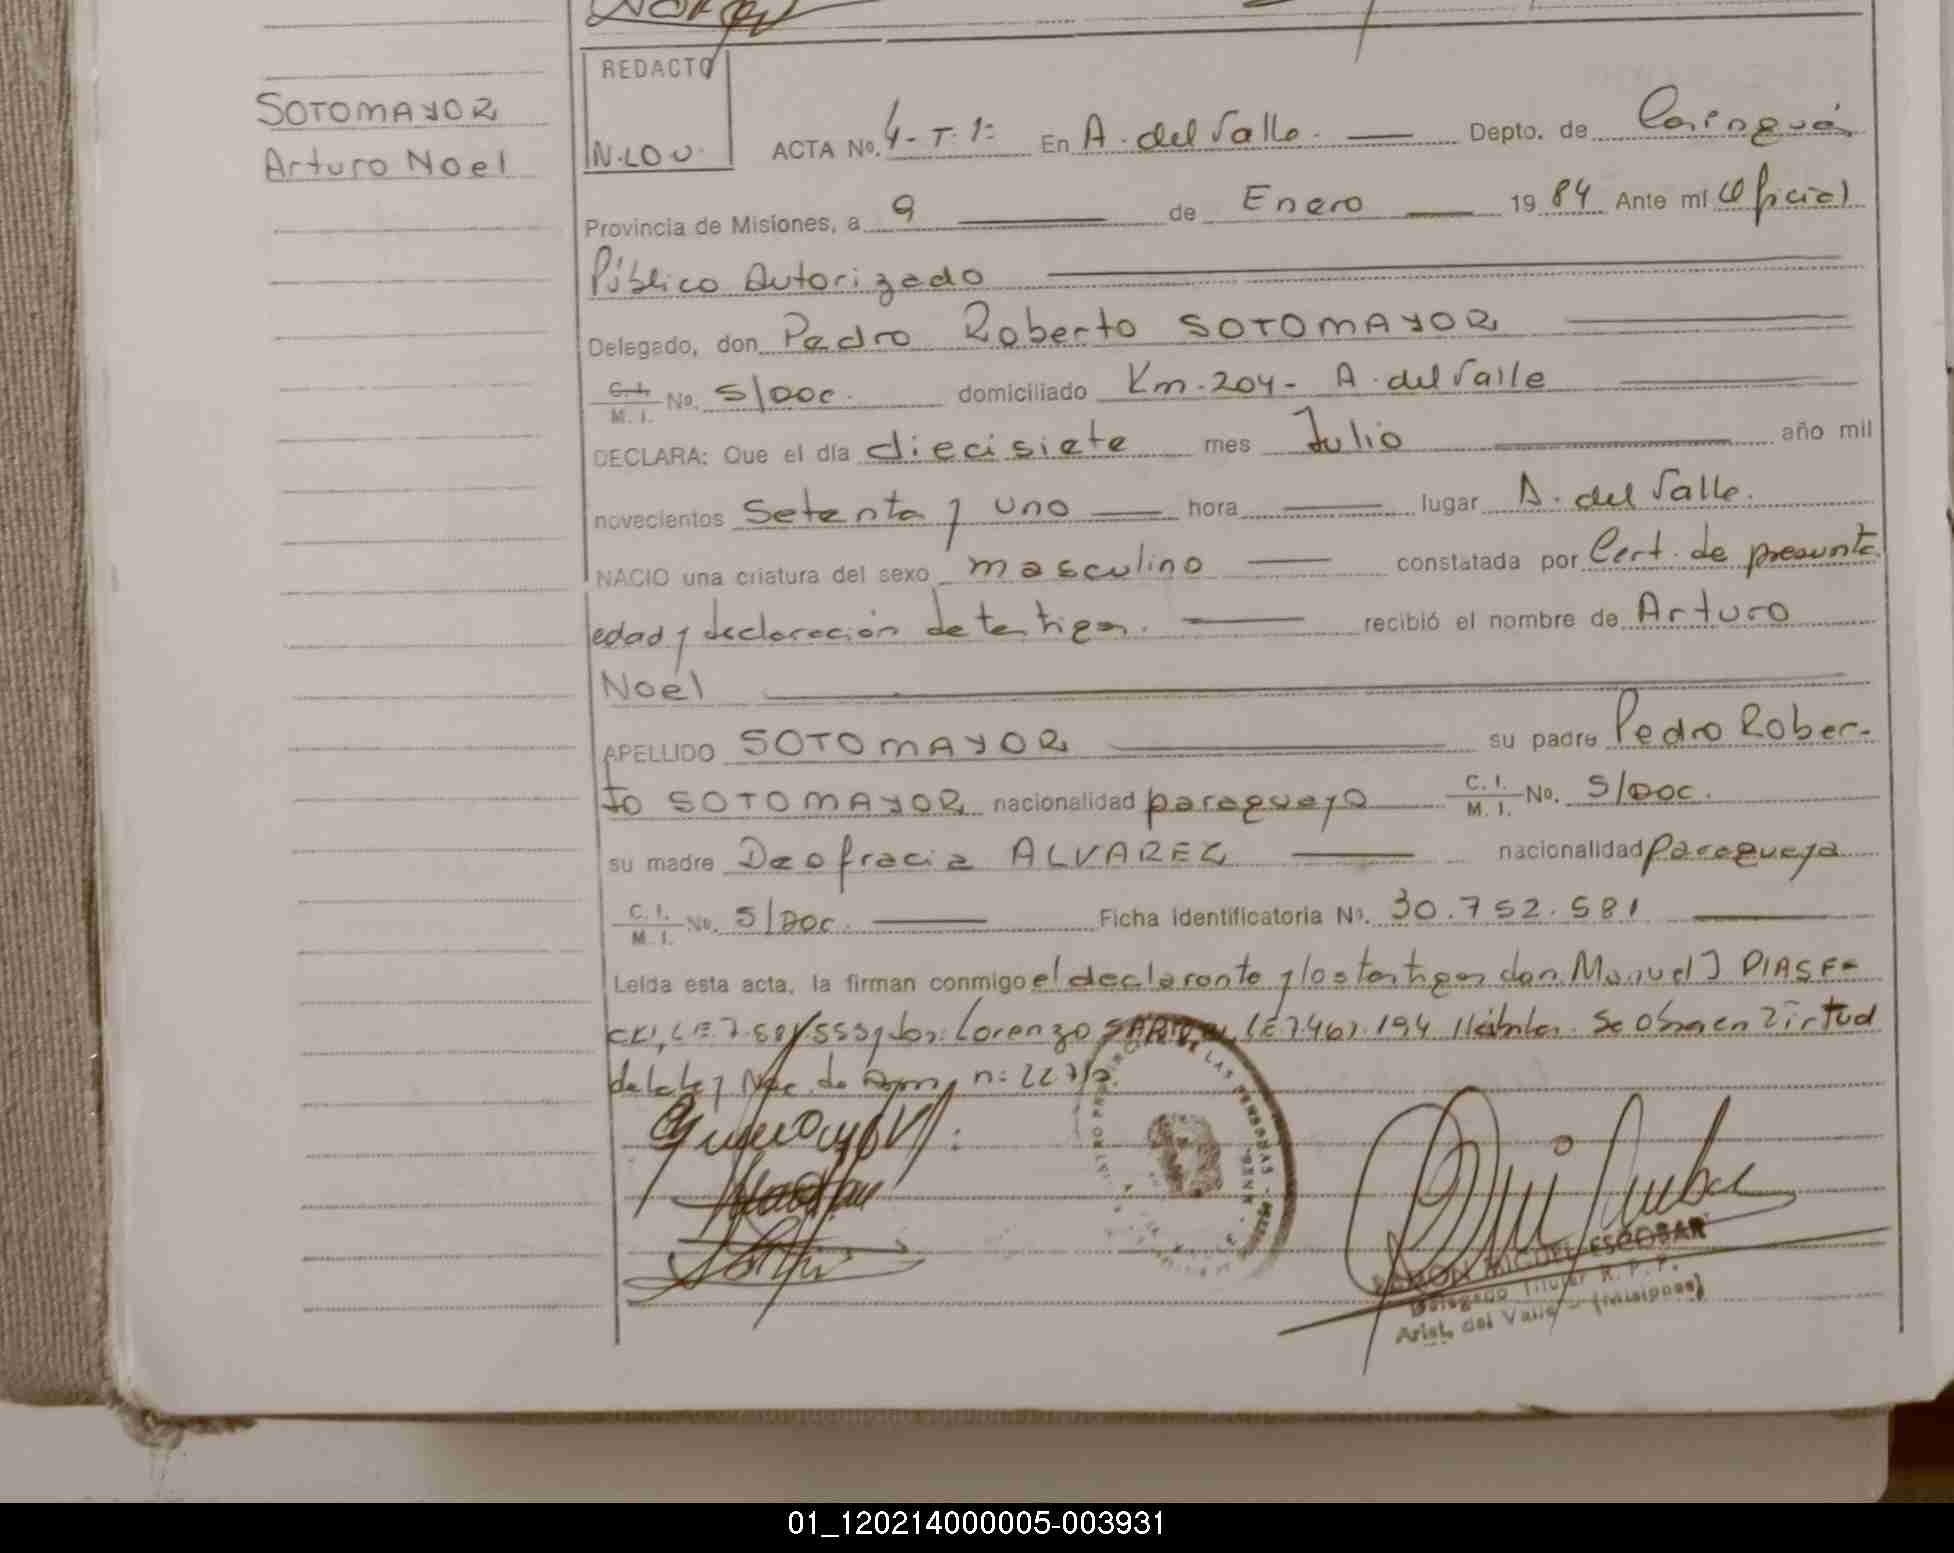 SOTOMAYOR
Arturo Noel
REDACTO
N.LOU.
ACTA No. 4-T.1= En A. del Valle. Depto. de Caingúas
Provincia de Misiones, a 9 de Enero 19 84 Ante mi Oficial
Público Autorizado
Delegado, don Pedro Roberto SOTOMAYOR
C.I. M. I. No. S/Doc. domiciliado Km. 204 - A. del Valle
DECLARA: Que el día diecisiete mes Julio año mil
novecientos setenta y uno hora lugar A. del Valle.
NACIO una criatura del sexo masculino constatada por Cert. de presunta
edad y declaración de testigos. recibió el nombre de Arturo
Noel
APELLIDO SOTOMAYOR su padre Pedro Rober-
to SOTOMAYOR nacionalidad paraguayo C. I. M. I. No. S/Doc.
su madre Deofracia ALVAREZ nacionalidad paraguaya
C. I. M. I. No. S/Doc. Ficha identificatoria No. 30.752.581
Leída esta acta, la firman conmigo el declarante y los testigos don Manuel J
Lorenzo 194 hábiles. Se obra en virtud
de la Ley Nac. de
RAMON MIGUEL ESCOBAR
Delegado Titular R. P. P.
Arist. del Valle - (Misiones)
01_120214000005-003931